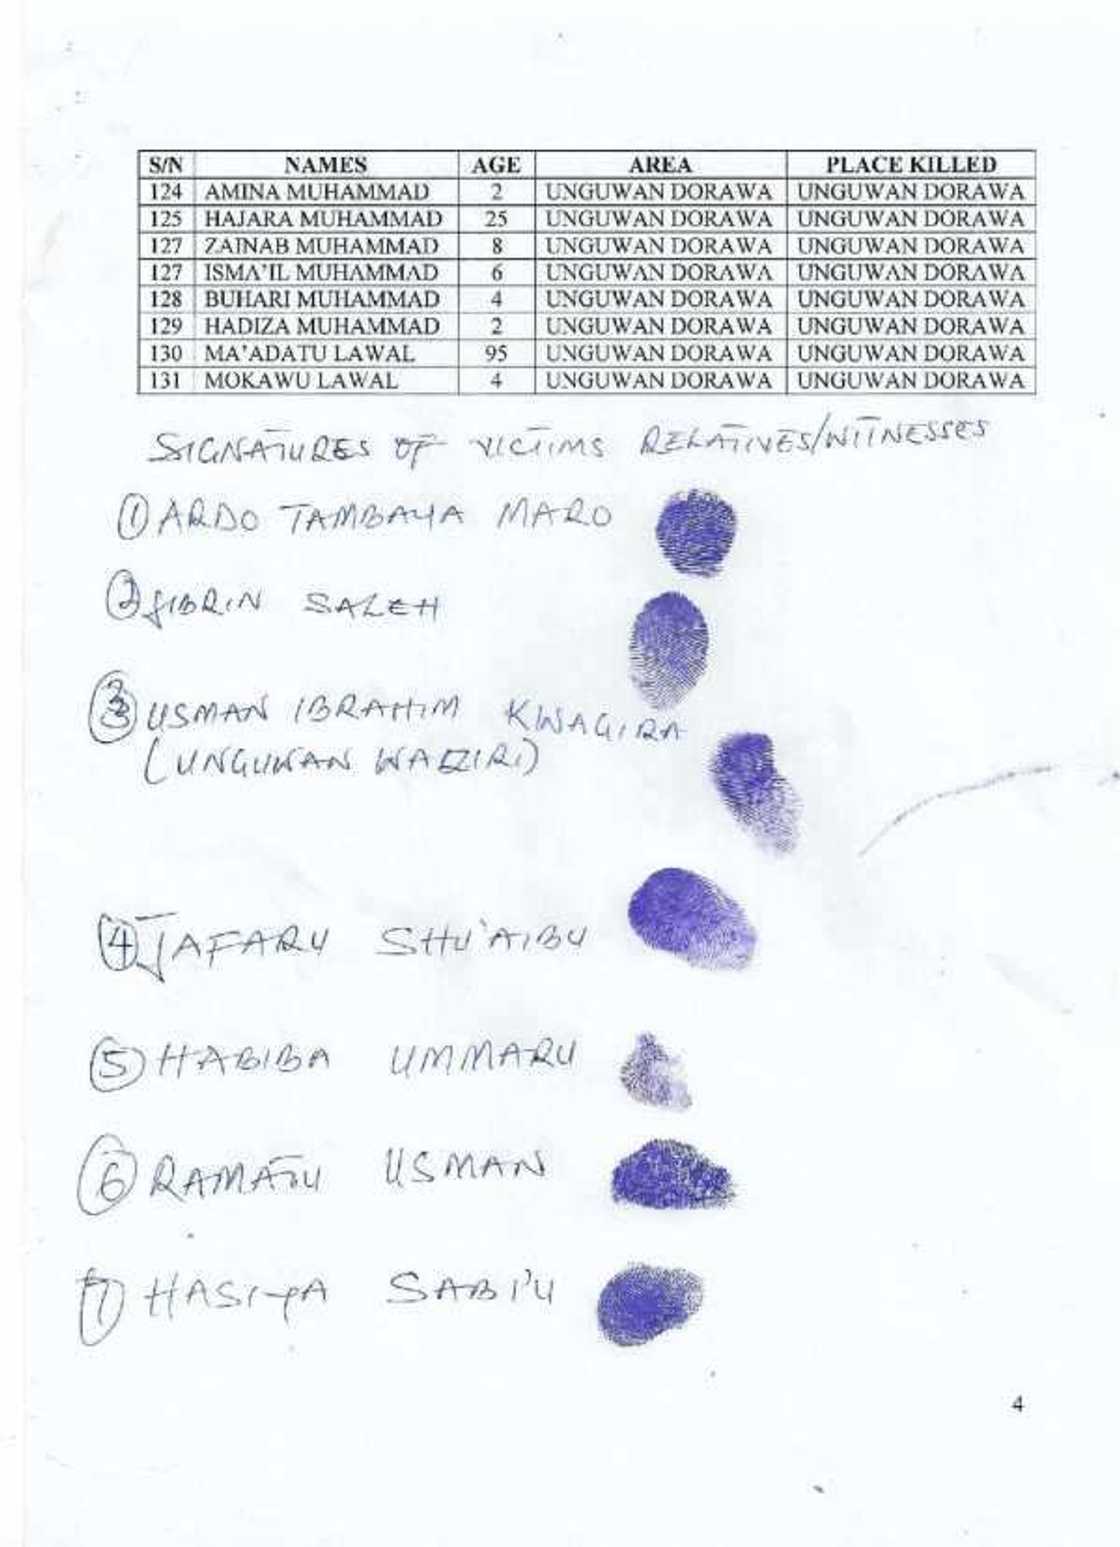 S/N NAMES AGE AREA PLACE KILLED
124 AMINA MUHAMMAD 2 UNGUWAN DORAWA UNGUWAN DORAWA
125 HAJARA MUHAMMAD 25 UNGUWAN DORAWA UNGUWAN DORAWA
127 ZAINAB MUHAMMAD 8 UNGUWAN DORAWA UNGUWAN DORAWA
127 ISMA'IL MUHAMMAD 6 UNGUWAN DORAWA UNGUWAN DORAWA
128 BUHARI MUHAMMAD 4 UNGUWAN DORAWA UNGUWAN DORAWA
129 HADIZA MUHAMMAD 2 UNGUWAN DORAWA UNGUWAN DORAWA
130 MA'ADATU LAWAL 95 UNGUWAN DORAWA UNGUWAN DORAWA
131 MOKAWU LAWAL 4 UNGUWAN DORAWA UNGUWAN DORAWA
SIGNATURES OF VICTIMS RELATIVES/WITNESSES
① ARDO TAMBAYA MARO
② JIBRIN SALEH
③ USMAN IBRAHIM KWAGIRA
(UNGUWAN WAZIRI)
④ JAFARU SHU'AIBU
⑤ HABIBA UMMARU
⑥ RAMATU USMAN
⑦ HASIYA SABI'U
4